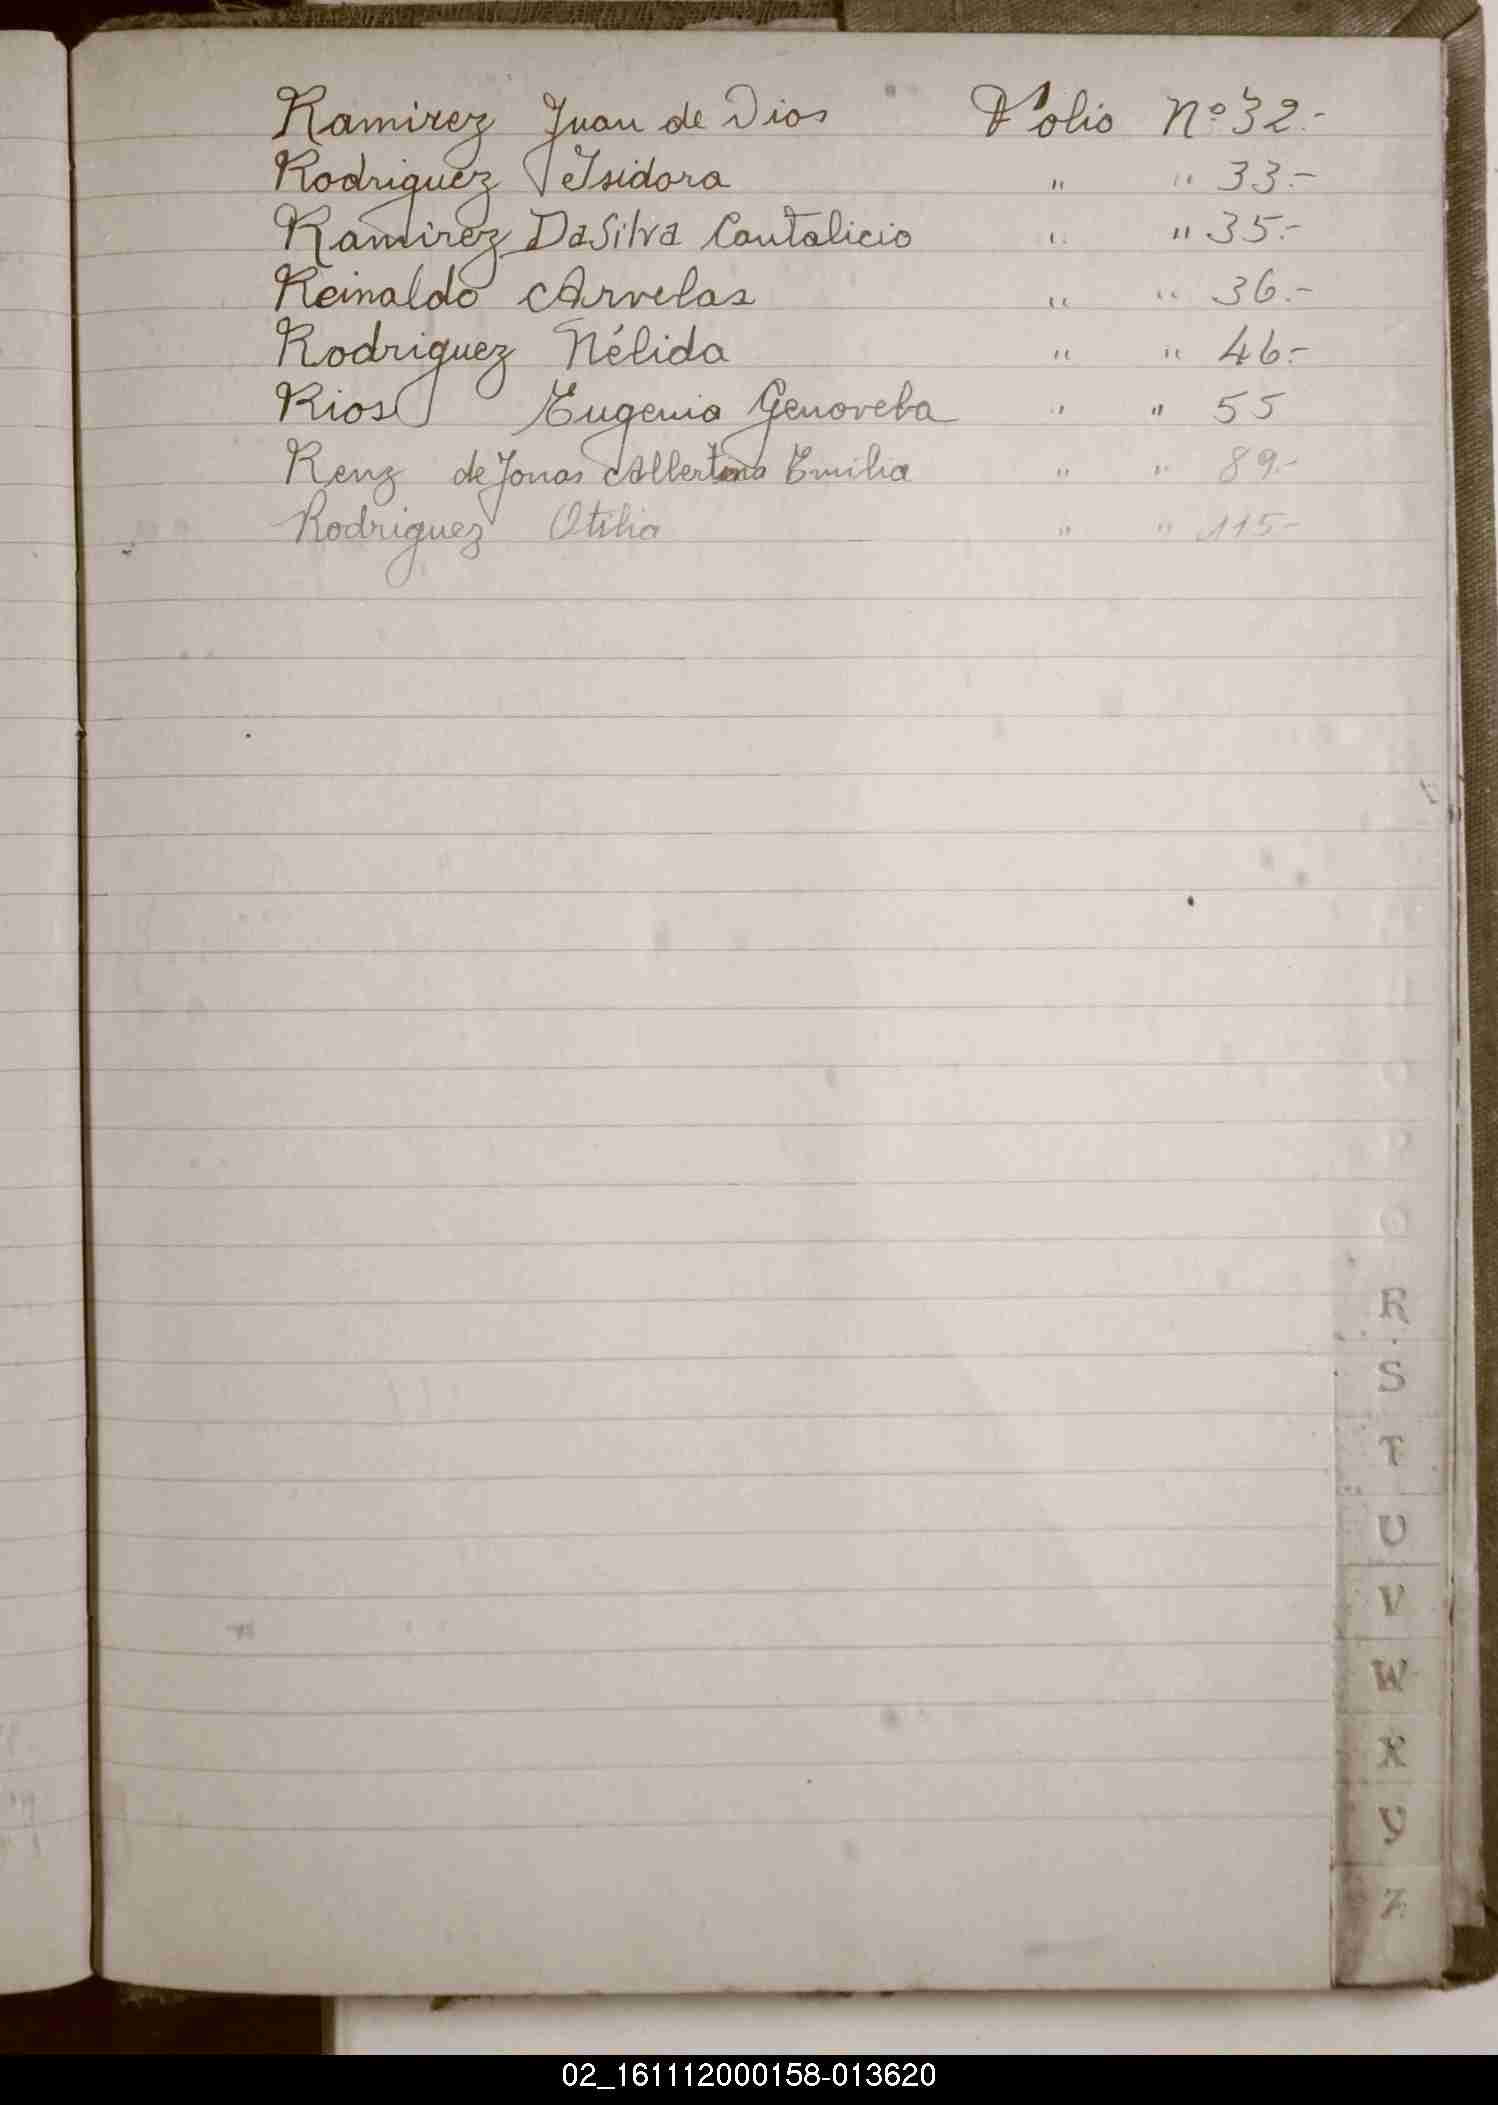 Ramirez Juan de Dios Folio Nº 32.-
Rodriguez Isidora " " 33.-
Ramirez DaSilva Cantalicio " " 35.-
Reinaldo Arvelas " " 36.-
Rodriguez Nélida " " 46.-
Rios Eugenia Genoveba " " 55
Renz de Jonas Albertina Emilia " " 89.-
Rodriguez Otilia " " 115-
R
S
T
U
V
W
X
Y
Z
02_161112000158-013620